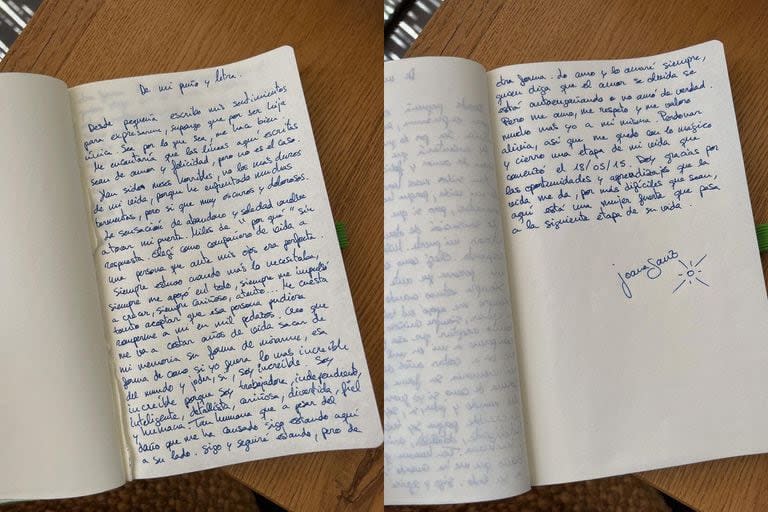 De mi puño y letra.
Desde pequeña escribo mis sentimientos
para expresarme, supongo que por ser hija
única. Sea por lo que sea, me hace bien.
Me encantaría que las líneas aquí escritas
sean de amor y felicidad, pero no es el caso.
Han sidos meses horribles, no los más duros
de mi vida, porque he enfrentado muchas
tormentas, pero sí que muy oscuros y dolorosos.
La sensación de abandono y soledad vuelve
a tocar mi puerta. Miles de "¿por qué?" sin
respuesta. Elegí como compañero de vida a
una persona que ante mis ojos era perfecta.
Siempre estuvo cuando más lo necesitaba,
siempre me apoyó en todo, siempre me impulsó
a crecer, siempre cariñoso, atento... Me cuesta
tanto aceptar que esa persona pudiera
romperme a mí en mil pedazos. Creo que
me va a costar años de vida sacar de
mi memoria su forma de mirarme, esa
forma de como si yo fuera lo más increíble
del mundo y joder, sí, soy increíble. Soy
increíble porque soy trabajadora, independiente,
inteligente, detallista, cariñosa, divertida, fiel
y humana. Tan humana que a pesar del
daño que me ha causado sigo estando aquí
a su lado. Sigo y seguiré estando, pero de
otra forma. Lo amo y lo amaré siempre,
quien diga que el amor se olvida se
está autoengañando o no amó de verdad.
Pero me amo, me respeto y me valoro
mucho más yo a mí misma. Perdonar
alivia, así que me quedo con lo mágico
y cierro una etapa de mi vida que
comenzó el 18/05/15. Doy gracias por
las oportunidades y aprendizajes que la
vida me da, por más difíciles que sean,
aquí está una mujer fuerte que pasa
a la siguiente etapa de su vida.
Joana Sanz